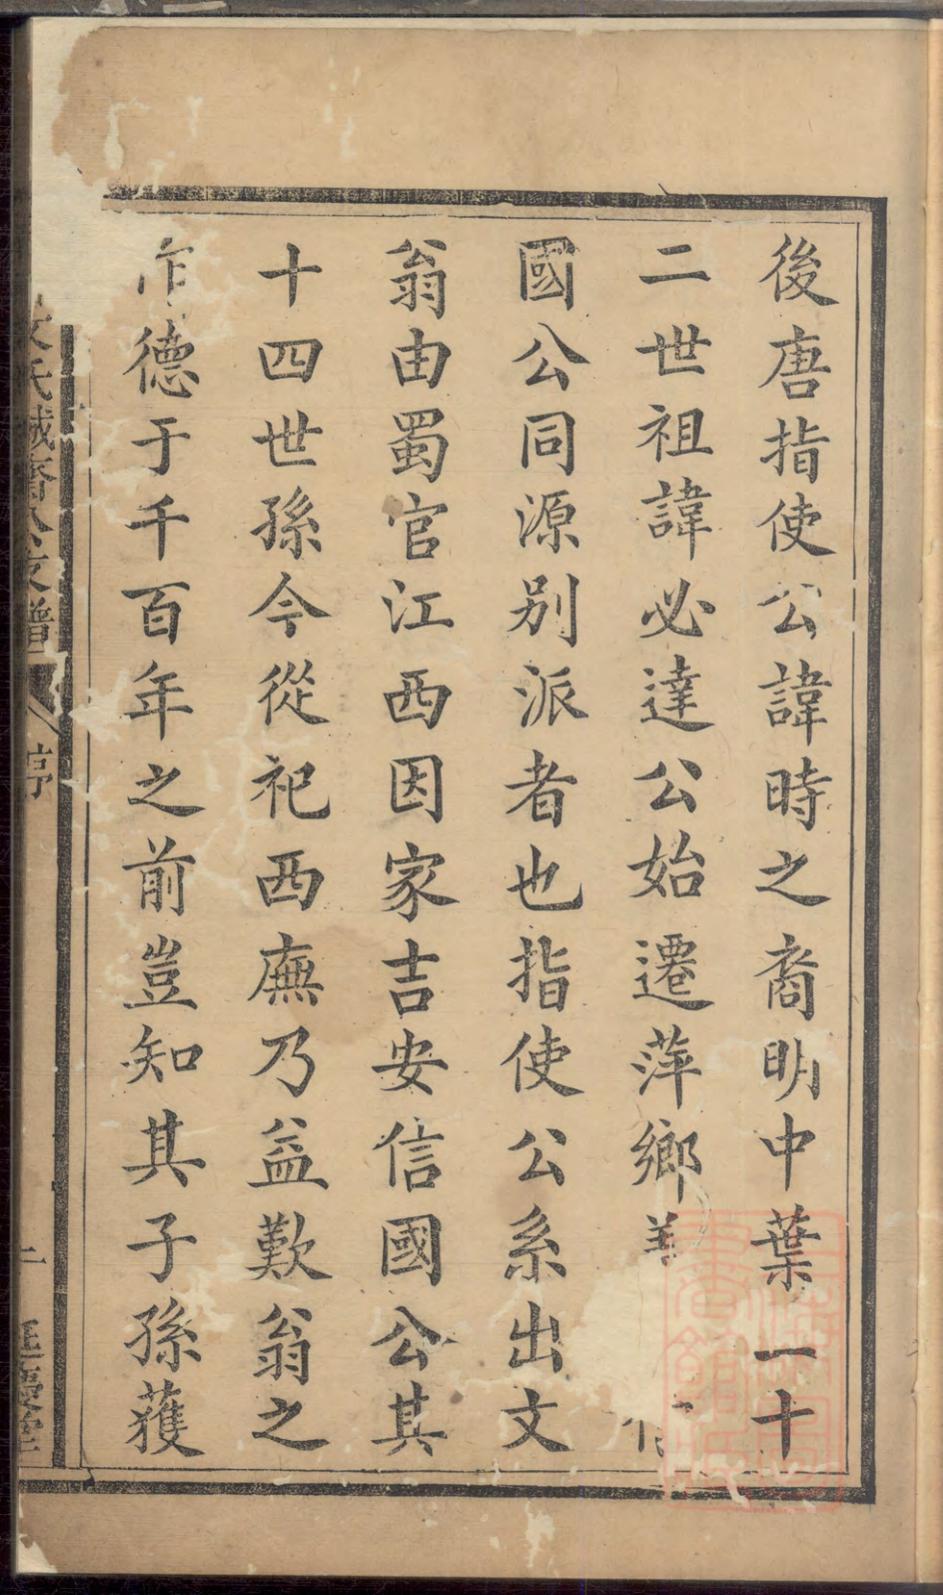 後唐指使公諱時之裔明中葉一十
二世祖諱必達公始遷萍鄉
國公同源别派者也指使公系出文
翁由蜀官江西因家吉安信國公其
十四世孫今從祀西廡乃益歎翁之
德于千百年之前豈知其子孫獲
文氏誠齋公支譜 序 二